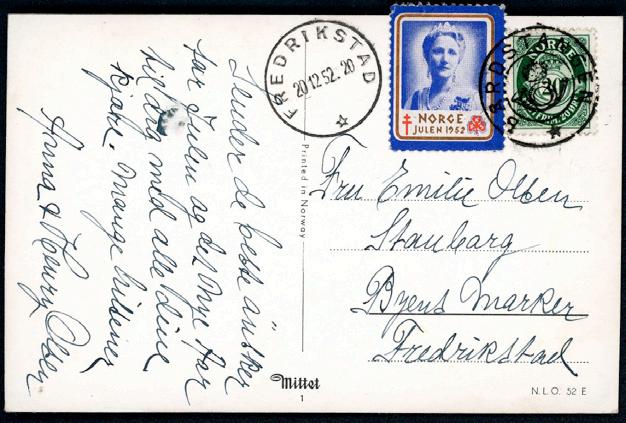 FREDRIKSTAD
20 12 52 - 20
NORGE
JULEN 1952
NORGE
Sender de beste ønsker
for Julen og det Nye Aar
til dig med alle dine
kjære. Mange hilsener
Anna & Henry Olsen
Printed in Norway
Fru Emilie Olsen
Stauberg
Byens Marker
Fredrikstad
Mittet
1
N.L.O. 52 E